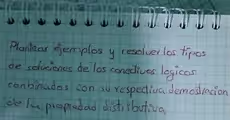 Plantear ejemplos y resolver los tipos
de soluciones de los conectivos logicos
combinados con su respectiva demostracion
de la propiedad distributiva.